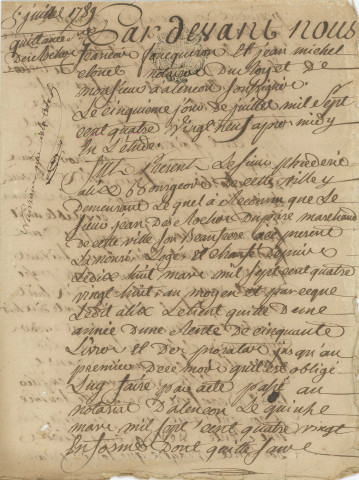 5 juillet 1789
quittance
Pardevant nous
francois Jacqueron et jean michel
notaire du Roy et de
monsieur a alencon soussignes
Le cinquieme jour de juillet mil sept
cent quatre vingt neuf apres midy
En L'etude
fut present Le sieur
alix Bourgeois de cette ville y
demeurant Lequel a reconnu que Le
sieur jean marchand
de cette ville son Beaufrere
La nouri Logé et chaufé depuis
Le dix huit mars mil sept cent quatre
vingt huit au moyen et parceque
Ledit alix Le tient quitte d'une
année d'une Rente de cinquante
Livres Et des prorata jusqu'au
premier de ce mois qu'il est obligé
Luy faire par acte passé au
notariat d'alencon Le quinze
mars mil sept cent quatre vingt
dont quitte sauve